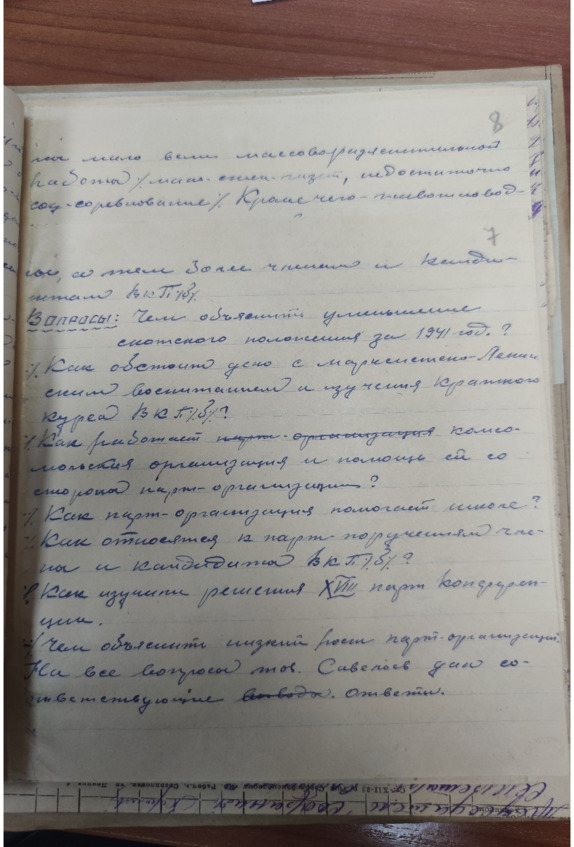 8
на мало вели массоворазяснительной
работа /мало стен-газет, недостаточно
соц-соревнование/ Кроме чего-животновод-
7
а тем более членам и канди-
датам ВКП/б/.
Вопросы: Чем объяснить уменьшение
скотского положения за 1941 год.?
Как обстоит дело с марксистско-Ленин
ским воспитанием и изучения Краткого
курса ВКП/б/?
Как работает парт-организация комсо-
мольская организация и помощь ей со
стороны парт-организации?
Как парт-организация помогает школе?
Как относятся к парт-поручениям чле-
ны и кандидаты ВКП/б/?
Как изучили решения XVIII парт конферен-
ции.
Чем объяснить низкий рост парт-организации
На все вопроса тов. Савелоев дал со-
ответствующие выводы. ответы.